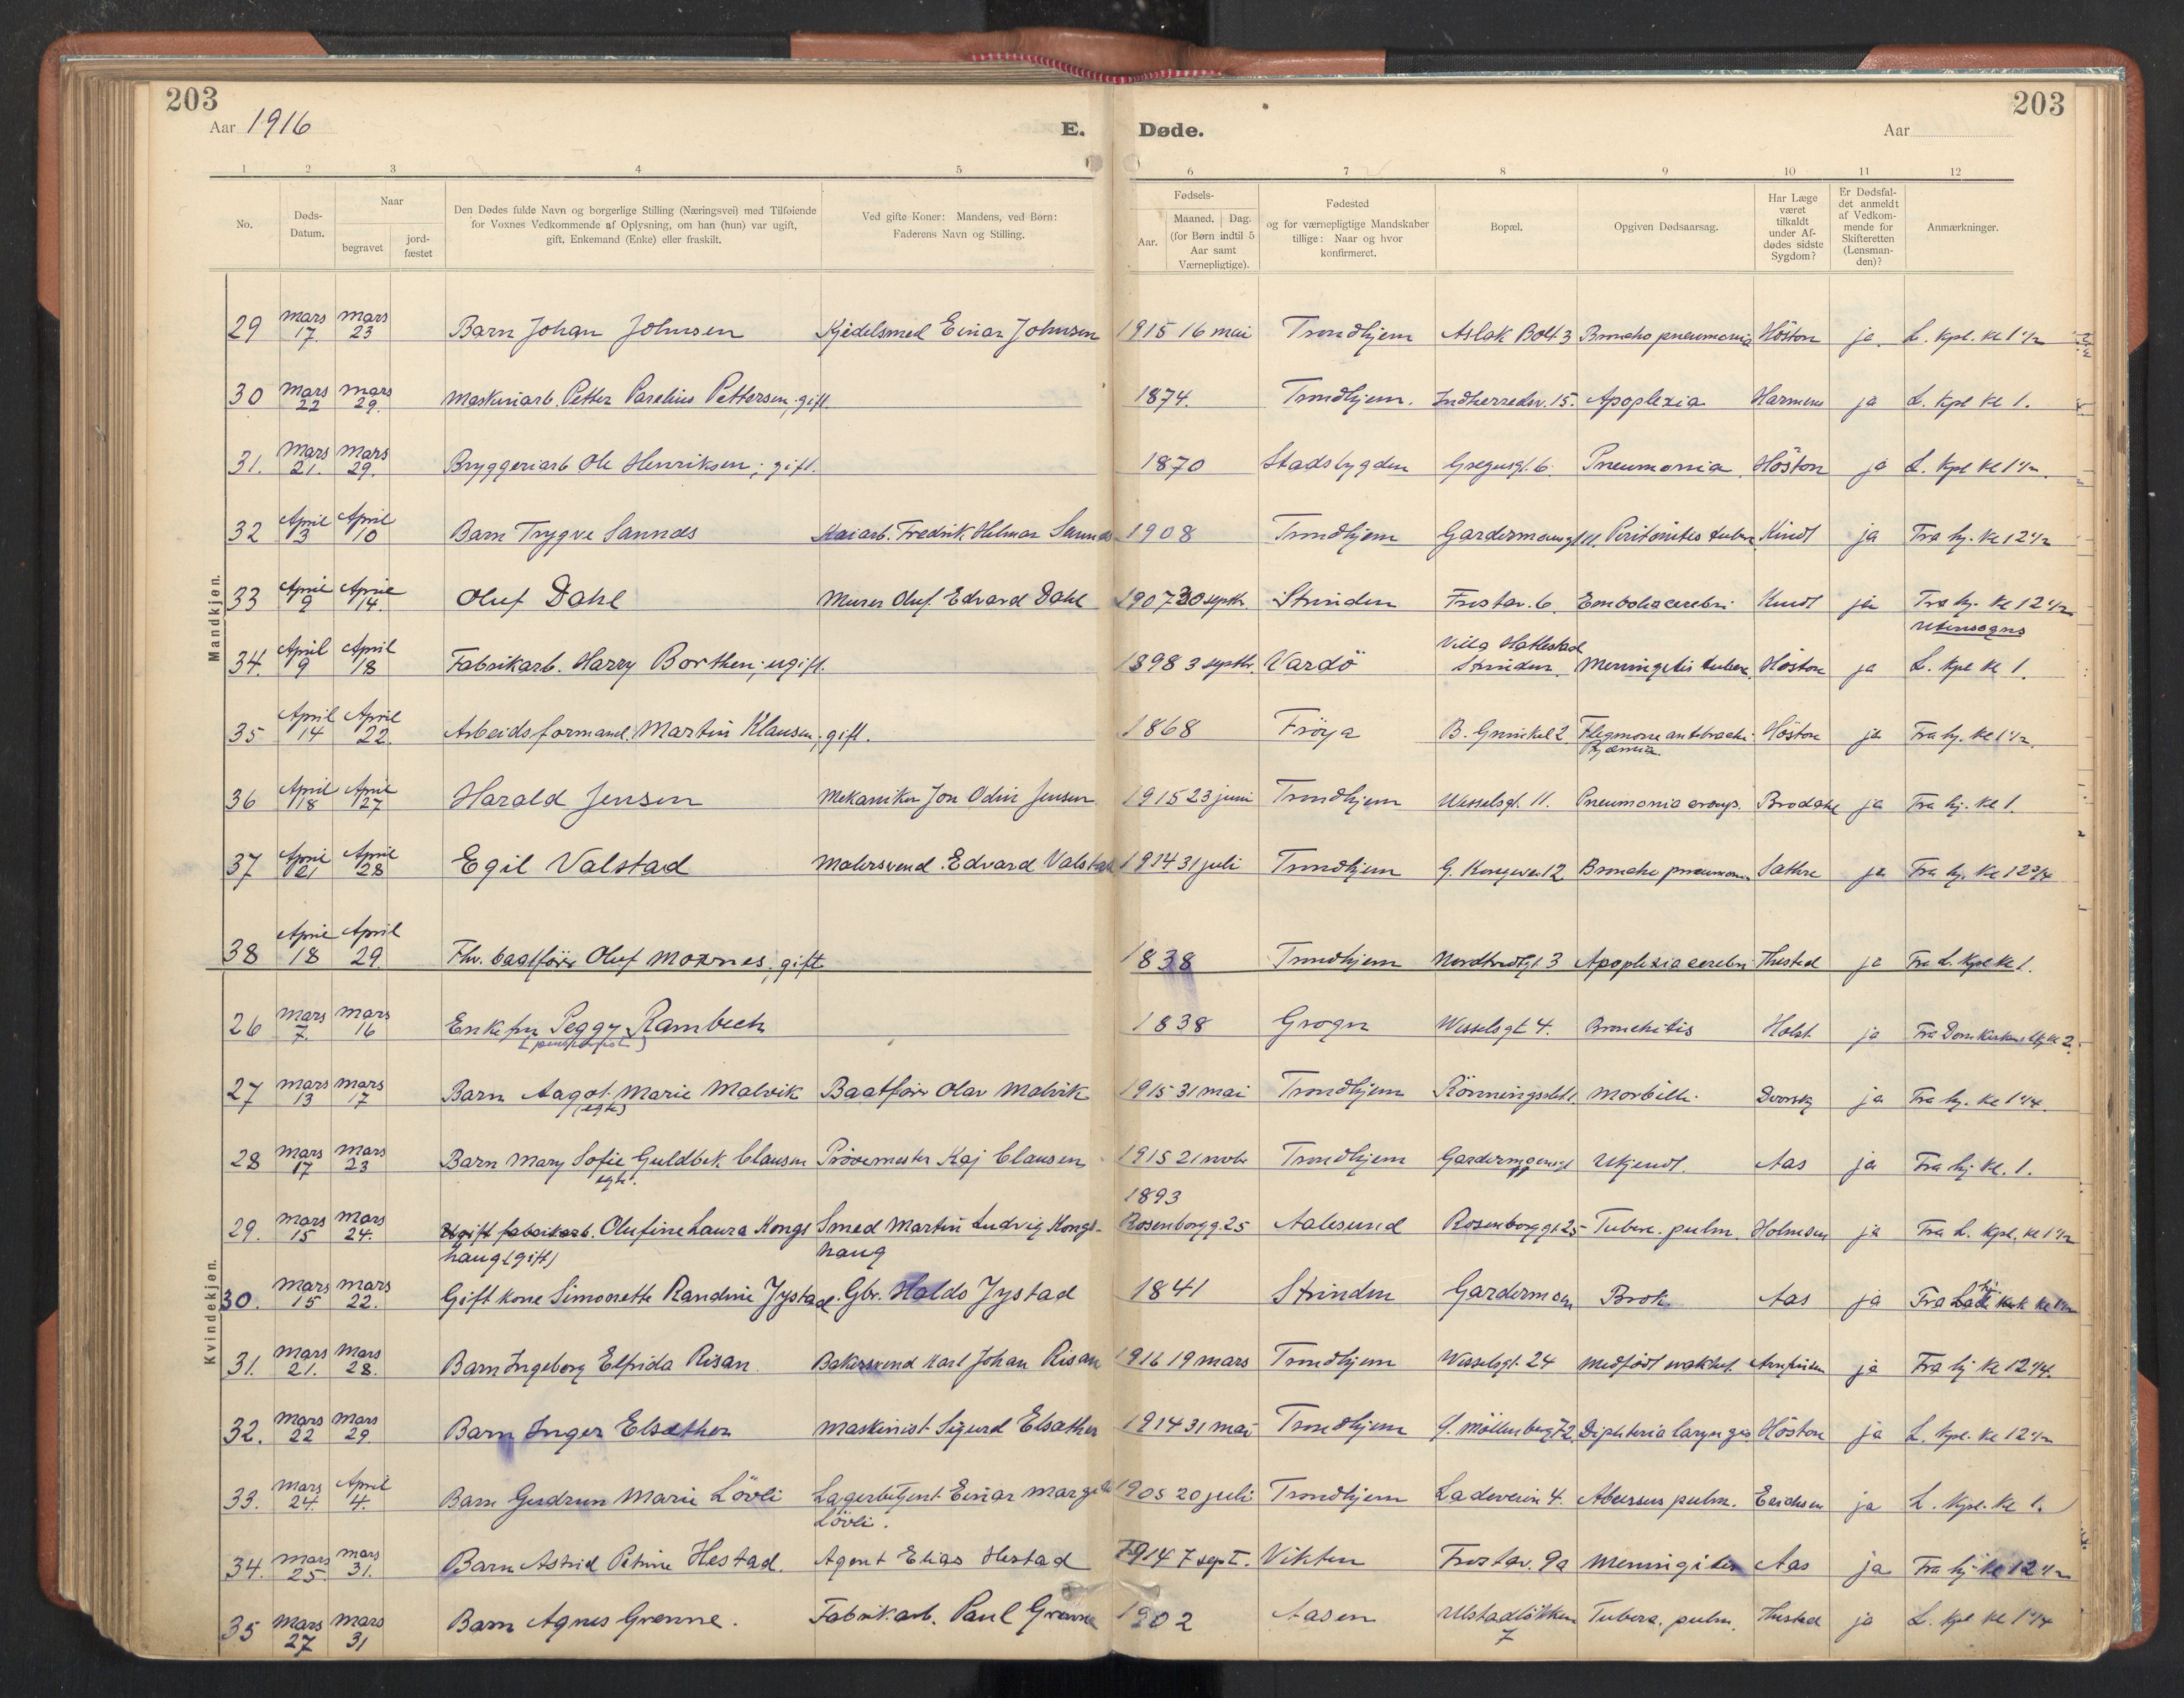 203 203
Aar 1916 E. Døde. Aar
1 2 3 4 5 6 7 8 9 10 11 12
No. Døds-Datum. Naar begravet jord-fæstet Den Dødes fulde Navn og borgerlige Stilling (Næringsvei) med Tilføiende for Voxnes Vedkommende af Oplysning, om han (hun) var ugift, gift, Enkemand (Enke) eller fraskilt. Ved gifte Koner: Mandens, ved Børn: Faderens Navn og Stilling. Fødsels- Aar. Maaned. Dag. (for Børn indtil 5 Aar samt Værnepligtige). Fødested og for værnepligtige Mandskaber tillige: Naar og hvor konfirmeret. Bopæl. Opgiven Dødsaarsag. Har Læge været tilkaldt under Afdødes sidste Sygdom? Er Dødsfaldet anmeldt af Vedkommende for Skifteretten (Lensmanden)? Anmærkninger.
Mandkjøn.
29 mars 17. mars 23 Barn Johan Johnsen Kjedelsmed Einar Johnsen 1915 16 mai Trondhjem Aslak Bolt. 3 Broncho pneumonia Höston ja. L. Kpl. Kl 1 1/2
30 mars 22 mars 29. Maskinarb. Petter Parelius Pettersen, gift. 1874. Trondhjem. Indherredsv. 15. Apoplexia Harmens ja L. Kpl Kl 1.
31. Mars 21. Mars 29. Bryggeriarb Ole Henriksen; gift. 1870 Stadsbygden Gregusgt. 6. Pneumonia. Höston ja L. Kpl Kl 1 1/2.
32 April 3 April 10 Barn Trygve Sannes Kaiarb. Fredrik Helmar Sannes 1908 Trondhjem Gardermonsgt 11. Peritonites tuberc. Kindt ja Fra hj. Kl 12 1/2
33 April 9 April 14. Oluf Dahl Murer Oluf Edvard Dahl 1907 30 septbr. Strinden Frostav. 6. Embolia cerebri Kindt ja Fra hj. Kl 12 1/2
34. April 9 April 18 Fabrikarb. Harry Borthen; ugift. 1898 3 septbr. Vardö Villa Hallestad Strinden. Meningitis tuberc. Höston ja Utensogns L. Kpl Kl 1.
35 April 14 April 22. Arbeidsformand. Martin Klausen; gift. 1868 Fröya B. Grinikel 2. Flegmone antibrachi. Pyæmia. Höston ja Fra hj. Kl 1 1/2.
36 April 18 April 27 Harald Jensen Mekaniker Jon Odin Jensen 1915 23 juni Trondhjem Wesselsgt. 11. Pneumonia croup. Brodahl ja Fra hj. Kl 1.
37 April 21 April 28 Egil Valstad Malersvend. Edvard Valstad 1914 31 juli Trondhjem G. Kongevei. 12 Broncho pneumonia Sæthre ja Fra hj. Kl 12 3/4
38 April 18 April 29. Fhv. baatförer Oluf Moxnes, gift 1838 Trondhjem Nordtvedtgt 3 Apoplexia cerebri Thisted ja Fra L. Kpl Kl 1.
Kvindekjøn.
26 mars 7. mars 16 Enkefru Peggy Rambech 1838 Grogn Wesselsgt 4. Bronchitis Holst ja Fra Domkirken Kl 2.
27 mars 13 mars 17 Barn Aagot Marie Malvik (egte) Baatförer Olav Malvik 1915 31 mai Trondhjem Rönningsletl. Morbilli. Dvorsky ja Fra hj. Kl 1 1/4.
28 mars 17 mars 23 Barn Mary Sofie Guldbek Clausen egte. Prövemester Kaj Clausen 1915 21 novbr Trondhjem Gardermoensgt Ukjendt. Aas ja Fra hj Kl. 1.
29. mars 15 mars 24. Ugift fabrikarb. Olufine Laura Kongshaug (gift) Smed Martin Ludvig Kongshaug 1893 Rosenborgg. 25 Aalesund Rosenborggt. 25 Tuberc. pulm. Holmsen ja Fra L. Kpl. Kl 1 1/2
30. mars 15 mars 22. Gift kone Simonette Randine Jystad. Gbr. Haldo Jystad 1841 Strinden Gardermoen Brok. Aas ja Fra Lade kirk Kl 1 1/2
31. mars 21. mars 28. Barn Ingeborg Elfrida Risan. Bakersvend Karl Johan Risan 1916 19 mars Trondhjem Wesselsgt. 24 medfödt svakhet. Arnfinsen ja Fra hj Kl 12 1/4.
32. mars 22 mars 29. Barn Inger Elsæther Maskinist Sigurd Elsæther 1914 31 mai Trondhjem G. Möllenberg 72. Diphteria laryngis. Höston ja L. Kpl. Kl 12 1/2
33. mars 24. April 4. Barn Gudrun Marie Lövli Lagerbetjent Einar Lövli. 1905 20 juli Trondhjem Ladeveien 4. Abcessus pulm. Erichsen ja L. Kpl. Kl 1.
34. mars 25. mars 31. Barn Astrid Petrine Hestad. Agent Elias Hestad 1914 7 sept. Vikten Frostav. 9a Meningitis Aas ja Fra hj Kl 12 1/2
35 mars 27 mars 31 Barn Agnes Grenne. Fabrikarb. Paul Grenne 1902 Aasen Ulstadlökken 7 Tuberc. pulm. Thisted ja L. Kpl Kl 1 1/4